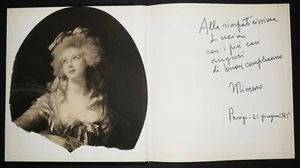 Alla simpaticissima
Lucia
con i più cari
auguri
di buon compleanno
Mimmo
Parigi - 21 giugno